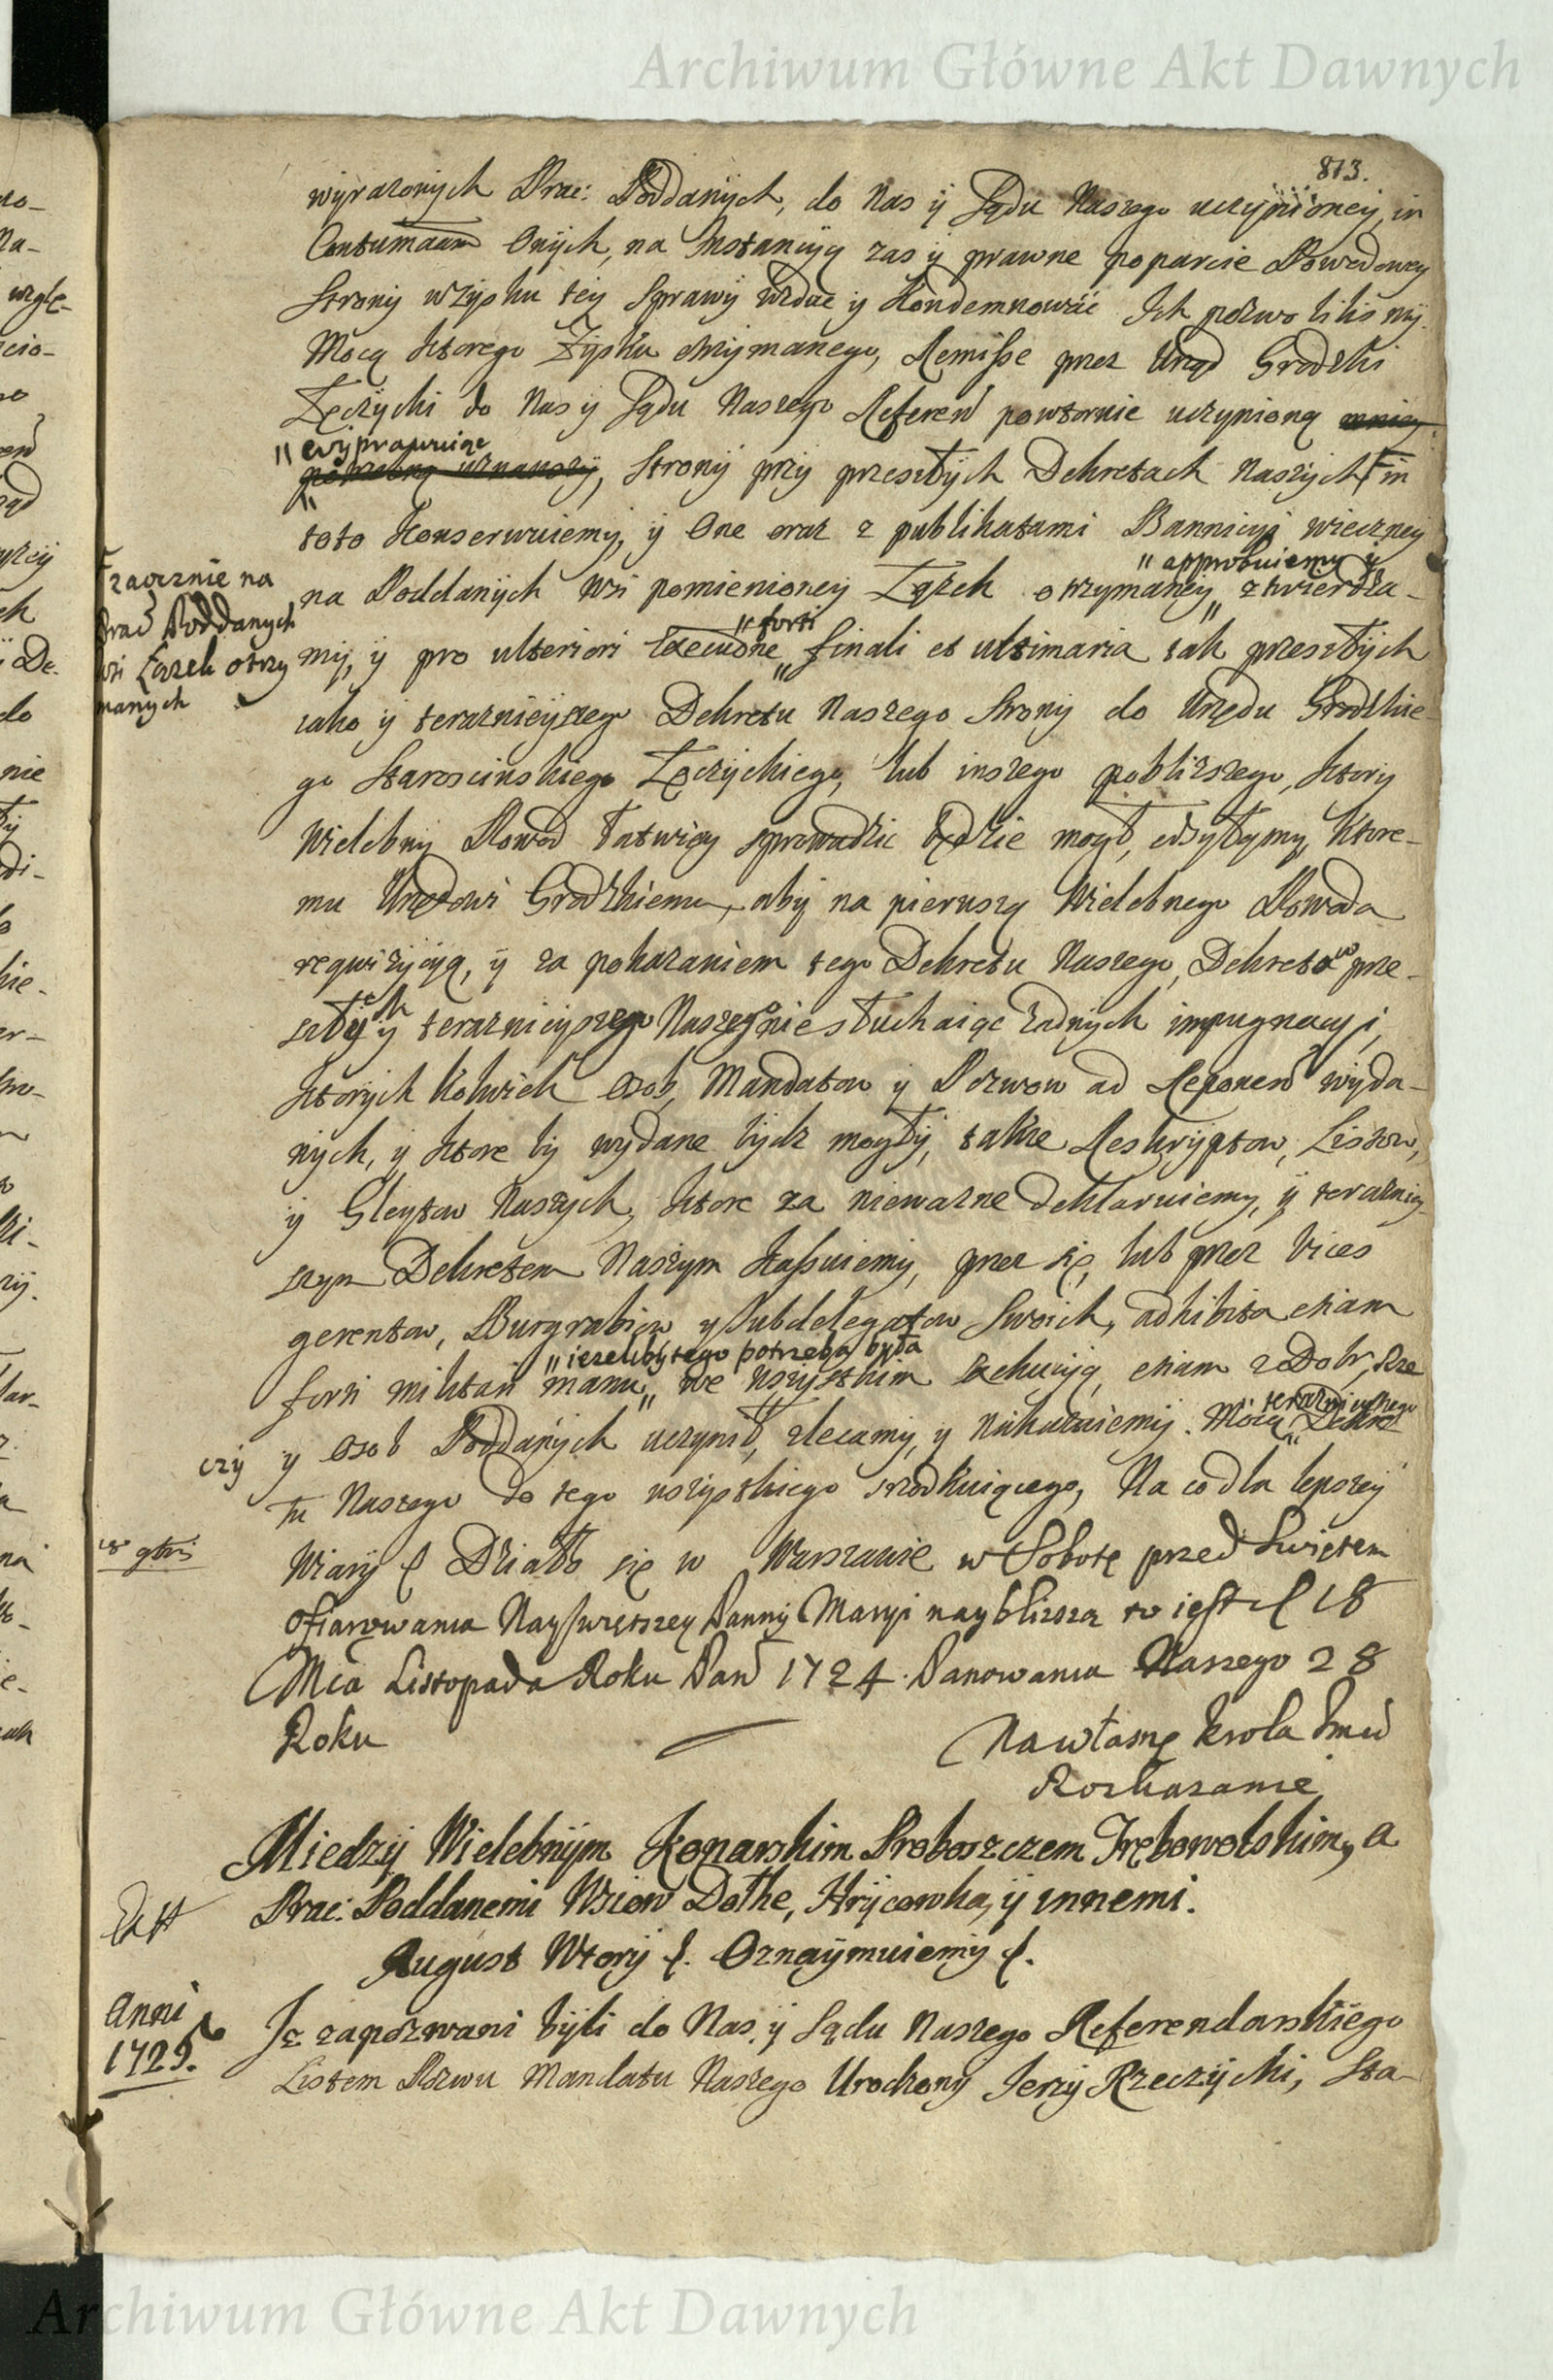 Archiwum Główne Akt Dawnych
813.
wyrazonych Prac: Poddanych, do Nas y Sądu Naszego uczynioney, in
Contumaciam Onych, na Instancyą zas y prawne poparcie Powodowey
Strony w zysku tey Sprawy wzdac y Kondemnować Ich pozwolilismy.
Mocą ktorego Zysku otrzymanego, Remisse przez Urząd Grodzki
Łęczycki do Nas y Sądu Naszego Referen powtornie uczynioną
"ewyprawuiąc
Strony przy przeszłych Dekretach Naszych in
toto Konserwuiemy, y One oraz z publikatami Bannicyi wieczney
"approbuiemy y
na Poddanych Wsi pomienioney Łązek otrzymaney" ztwierdza-
zaocznie na
Prac Poddanych
wsi Łązek otrzy
manych
"forti
my, y pro ulteriori Executione" finali et ultimaria tak przeszłych
iako y teraznieyszego Dekretu Naszego Strony do Urzędu Grodzkie-
go Staroscinskiego Łęczyckiego, lub inszego poblizszego, ktory
Wielebny Powod łatwiey sprowadzic będzie mogł, odsyłamy, Ktore-
mu Urzędowi Grodzkiemu, aby na pierwszą Wielebnego Powoda
requizycyą, y za pokazaniem tego Dekretu Naszego, Dekretow prze-
szłych y teraznieyszego Naszego nie słuchaiąc żadnych impugnacyi,
ktorych kolwiek Osob, Mandatow y Pozwow ad Reponen wyda-
nych, y ktore by wydane bydz mogły, także Reskryptow, Listow,
y Gleytow Naszych, ktore za niewazne deklaruiemy, y teraźniey-
szym Dekretem Naszym kassuiemy, przez się, lub przez Vices
gerentow, Burgrabiow y Subdelegatow Swoich, adhibita etiam
"iezeliby tego potrzeba była
forti militari manu" we wszystkim Exekucyą, etiam z Dobr, Rze
czy
teraznieyszego
y Osob Poddanych uczynił, zlecamy, y nakazuiemy. Mocą" Dekre
tu Naszego do tego wszystkiego srzodkuiącego, Na co dla lepszey
Wiary &. Działo się w Warszawie w Sobotę przed Swiętem
Ofiarowania Nayswiętszey Panny Maryi naybliższą to iest d 18
Mca Listopada Roku Pań 1724. Panowania Naszego 28
Roku
Na własne Krola Jmci
Rozkazanie
Miedzy Wielebnym Konarskim Proboszczem Trębowolskim, a
Prac: Poddanemi Wsiow Dołhe, Hrycowka, y innemi.
August Wtory &. Oznaymuiemy &.
Anni
1725.
Iz zapozwani byli do Nas y Sądu Naszego Referendarskiego
Listem Pozwu Mandatu Naszego Urodzony Jerzy Rzeczycki, Sta-
Archiwum Główne Akt Dawnych